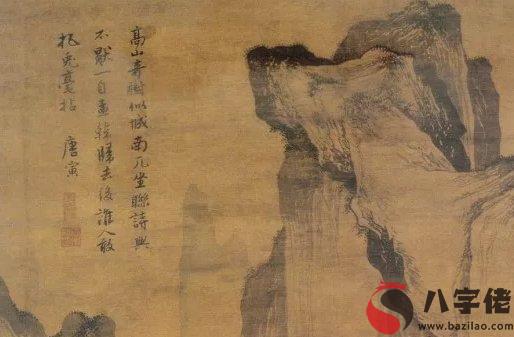 高山奇樹似城南兀坐聯詩興
不猒一自孟韓歸去後誰人敢
把兔毫拈 唐寅
八字佬
www.bazilao.com